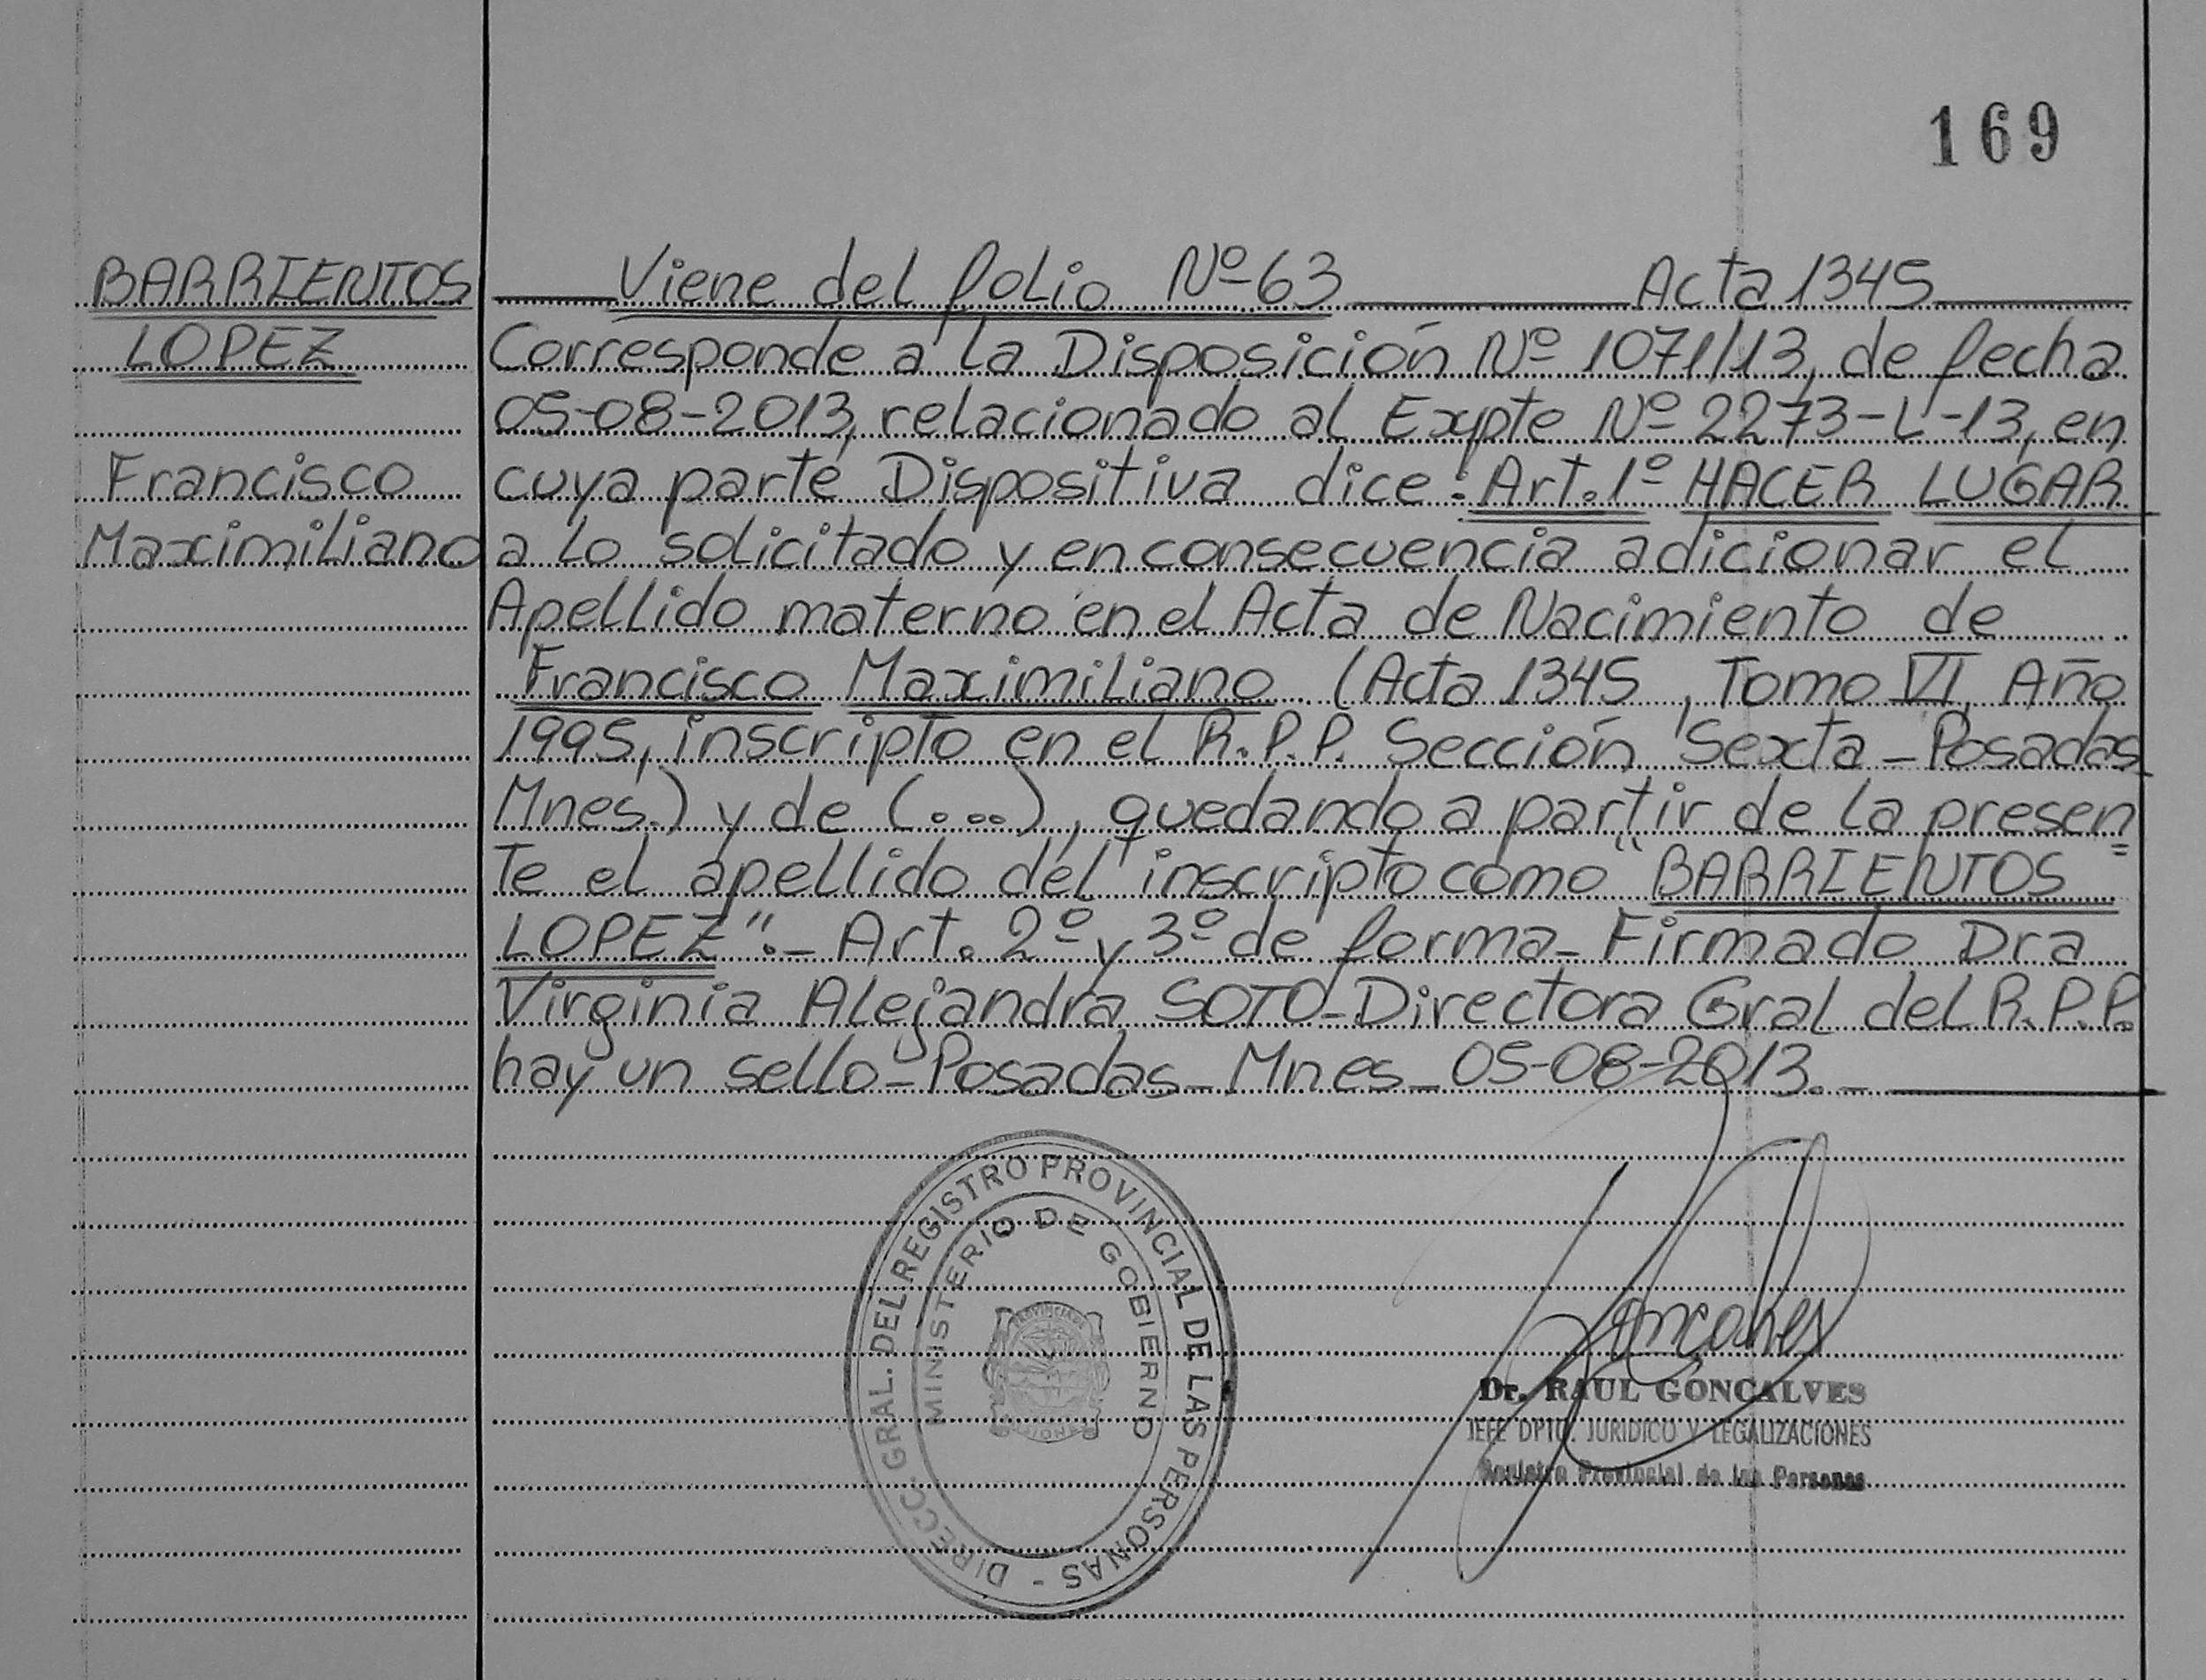 169
BARRIENTOS
LOPEZ
Francisco
Maximiliano
Viene del folio Nº 63 Acta 1345
Corresponde a la Disposición Nº 1071/13, de fecha
05-08-2013, relacionado al Expte Nº 2273-L-13, en
cuya parte Dispositiva dice: Art. 1º HACER LUGAR
a lo solicitado y en consecuencia adicionar el
Apellido materno en el Acta de Nacimiento de
Francisco Maximiliano (Acta 1345, Tomo VI, Año
1995, inscripto en el R.P.P. Sección Sexta - Posadas
Mnes.) y de (...), quedando a partir de la presen=
te el apellido del inscripto como "BARRIENTOS
LOPEZ".- Art. 2º y 3º de forma - Firmado Dra
Virginia Alejandra SOTO - Directora Gral del R.P.P.
hay un sello - Posadas - Mnes - 05-08-2013.-
DIRECC. GRAL. DEL REGISTRO PROVINCIAL DE LAS PERSONAS -
MINISTERIO DE GOBIERNO
PROVINCIA DE
MISIONES
Goncalves
Dr. RAUL GONCALVES
JEFE DPTO. JURIDICO Y LEGALIZACIONES
Registro Provincial de las Personas